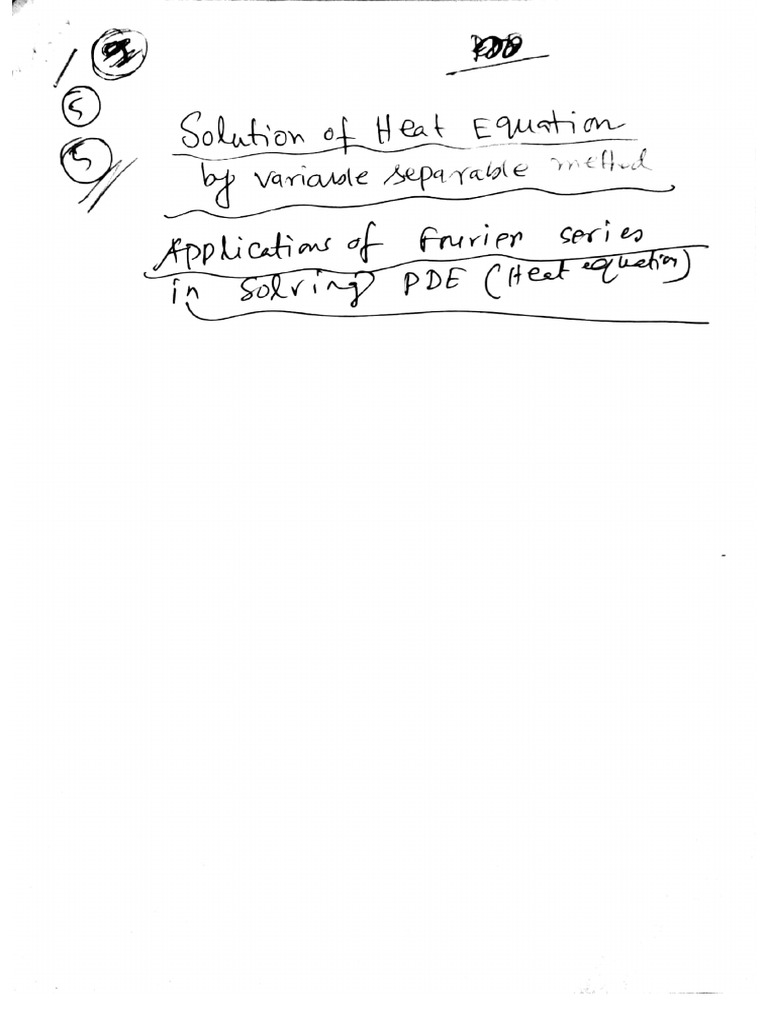 5
5
Solution of Heat Equation
by variable separable method
Applications of Fourier series
in Solving PDE (Heat equation)